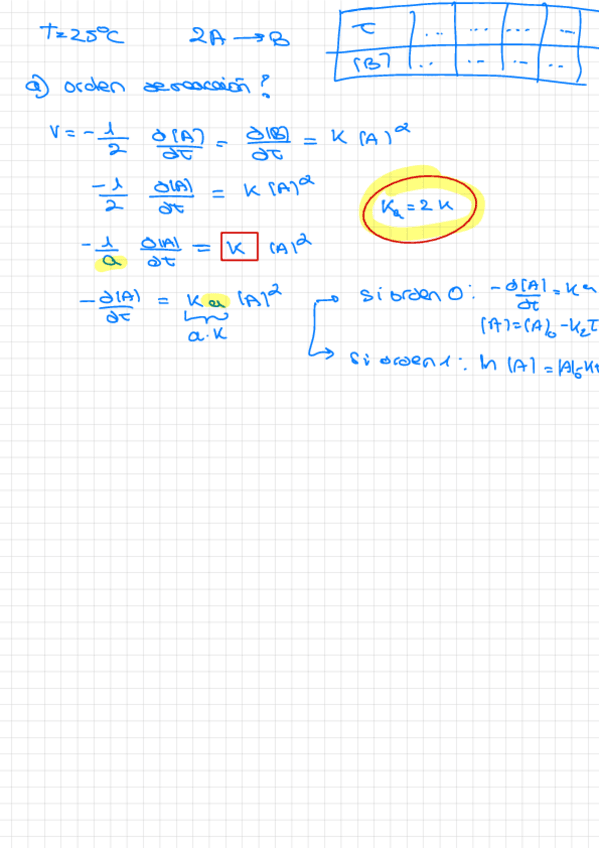 T=25ºC 2A → B
τ ... ... ... ...
[B] .. .. .. ..
a) orden de reacción?
V = -1/2 ∂[A]/∂τ = ∂[B]/∂τ = K [A]^α
-1/2 ∂[A]/∂τ = K [A]^α
Ka = 2K
-1/a ∂[A]/∂τ = K [A]^α
-∂[A]/∂τ = K a [A]^α
a·K
→ si orden 0: -∂[A]/∂τ = Ka
[A] = [A]₀ - K₂τ
→ si orden 1: ln [A] = [A]₀ Kt